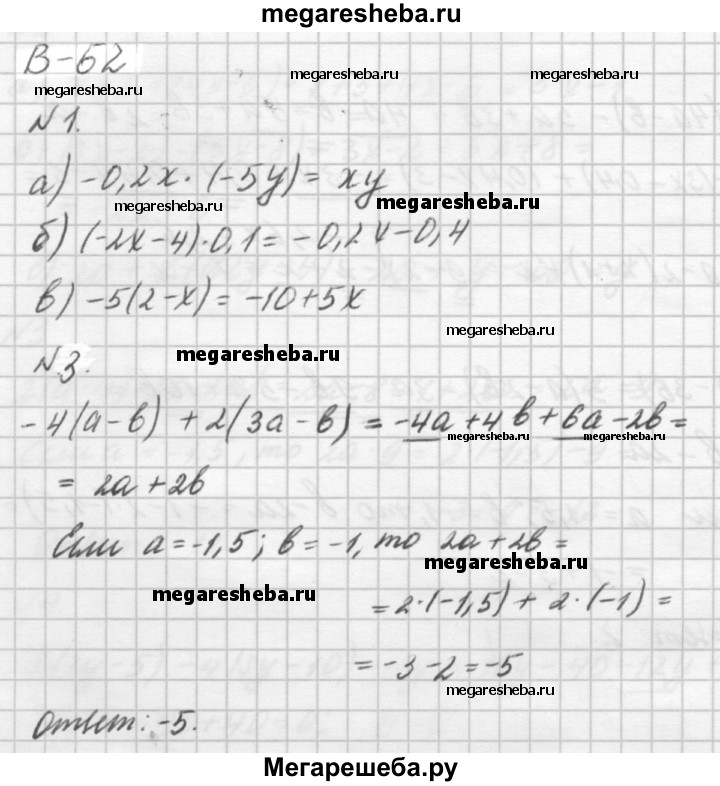 megaresheba.ru
В-62
megaresheba.ru megaresheba.ru megaresheba.ru
N1.
а) -0,2x·(-5y)= xy
megaresheba.ru megaresheba.ru
б) (-2x-4)·0,1=-0,2x-0,4
в) -5(2-x)=-10+5x
megaresheba.ru
N3. megaresheba.ru
-4(a-b)+2(3a-b)=-4a+4b+6a-2b=
megaresheba.ru megaresheba.ru
= 2a+2b
Если a=-1,5; b=-1, то 2a+2b=
megaresheba.ru
megaresheba.ru =2·(-1,5)+2·(-1)=
=-3-2=-5
megaresheba.ru
Ответ: -5.
Мегарешеба.ру